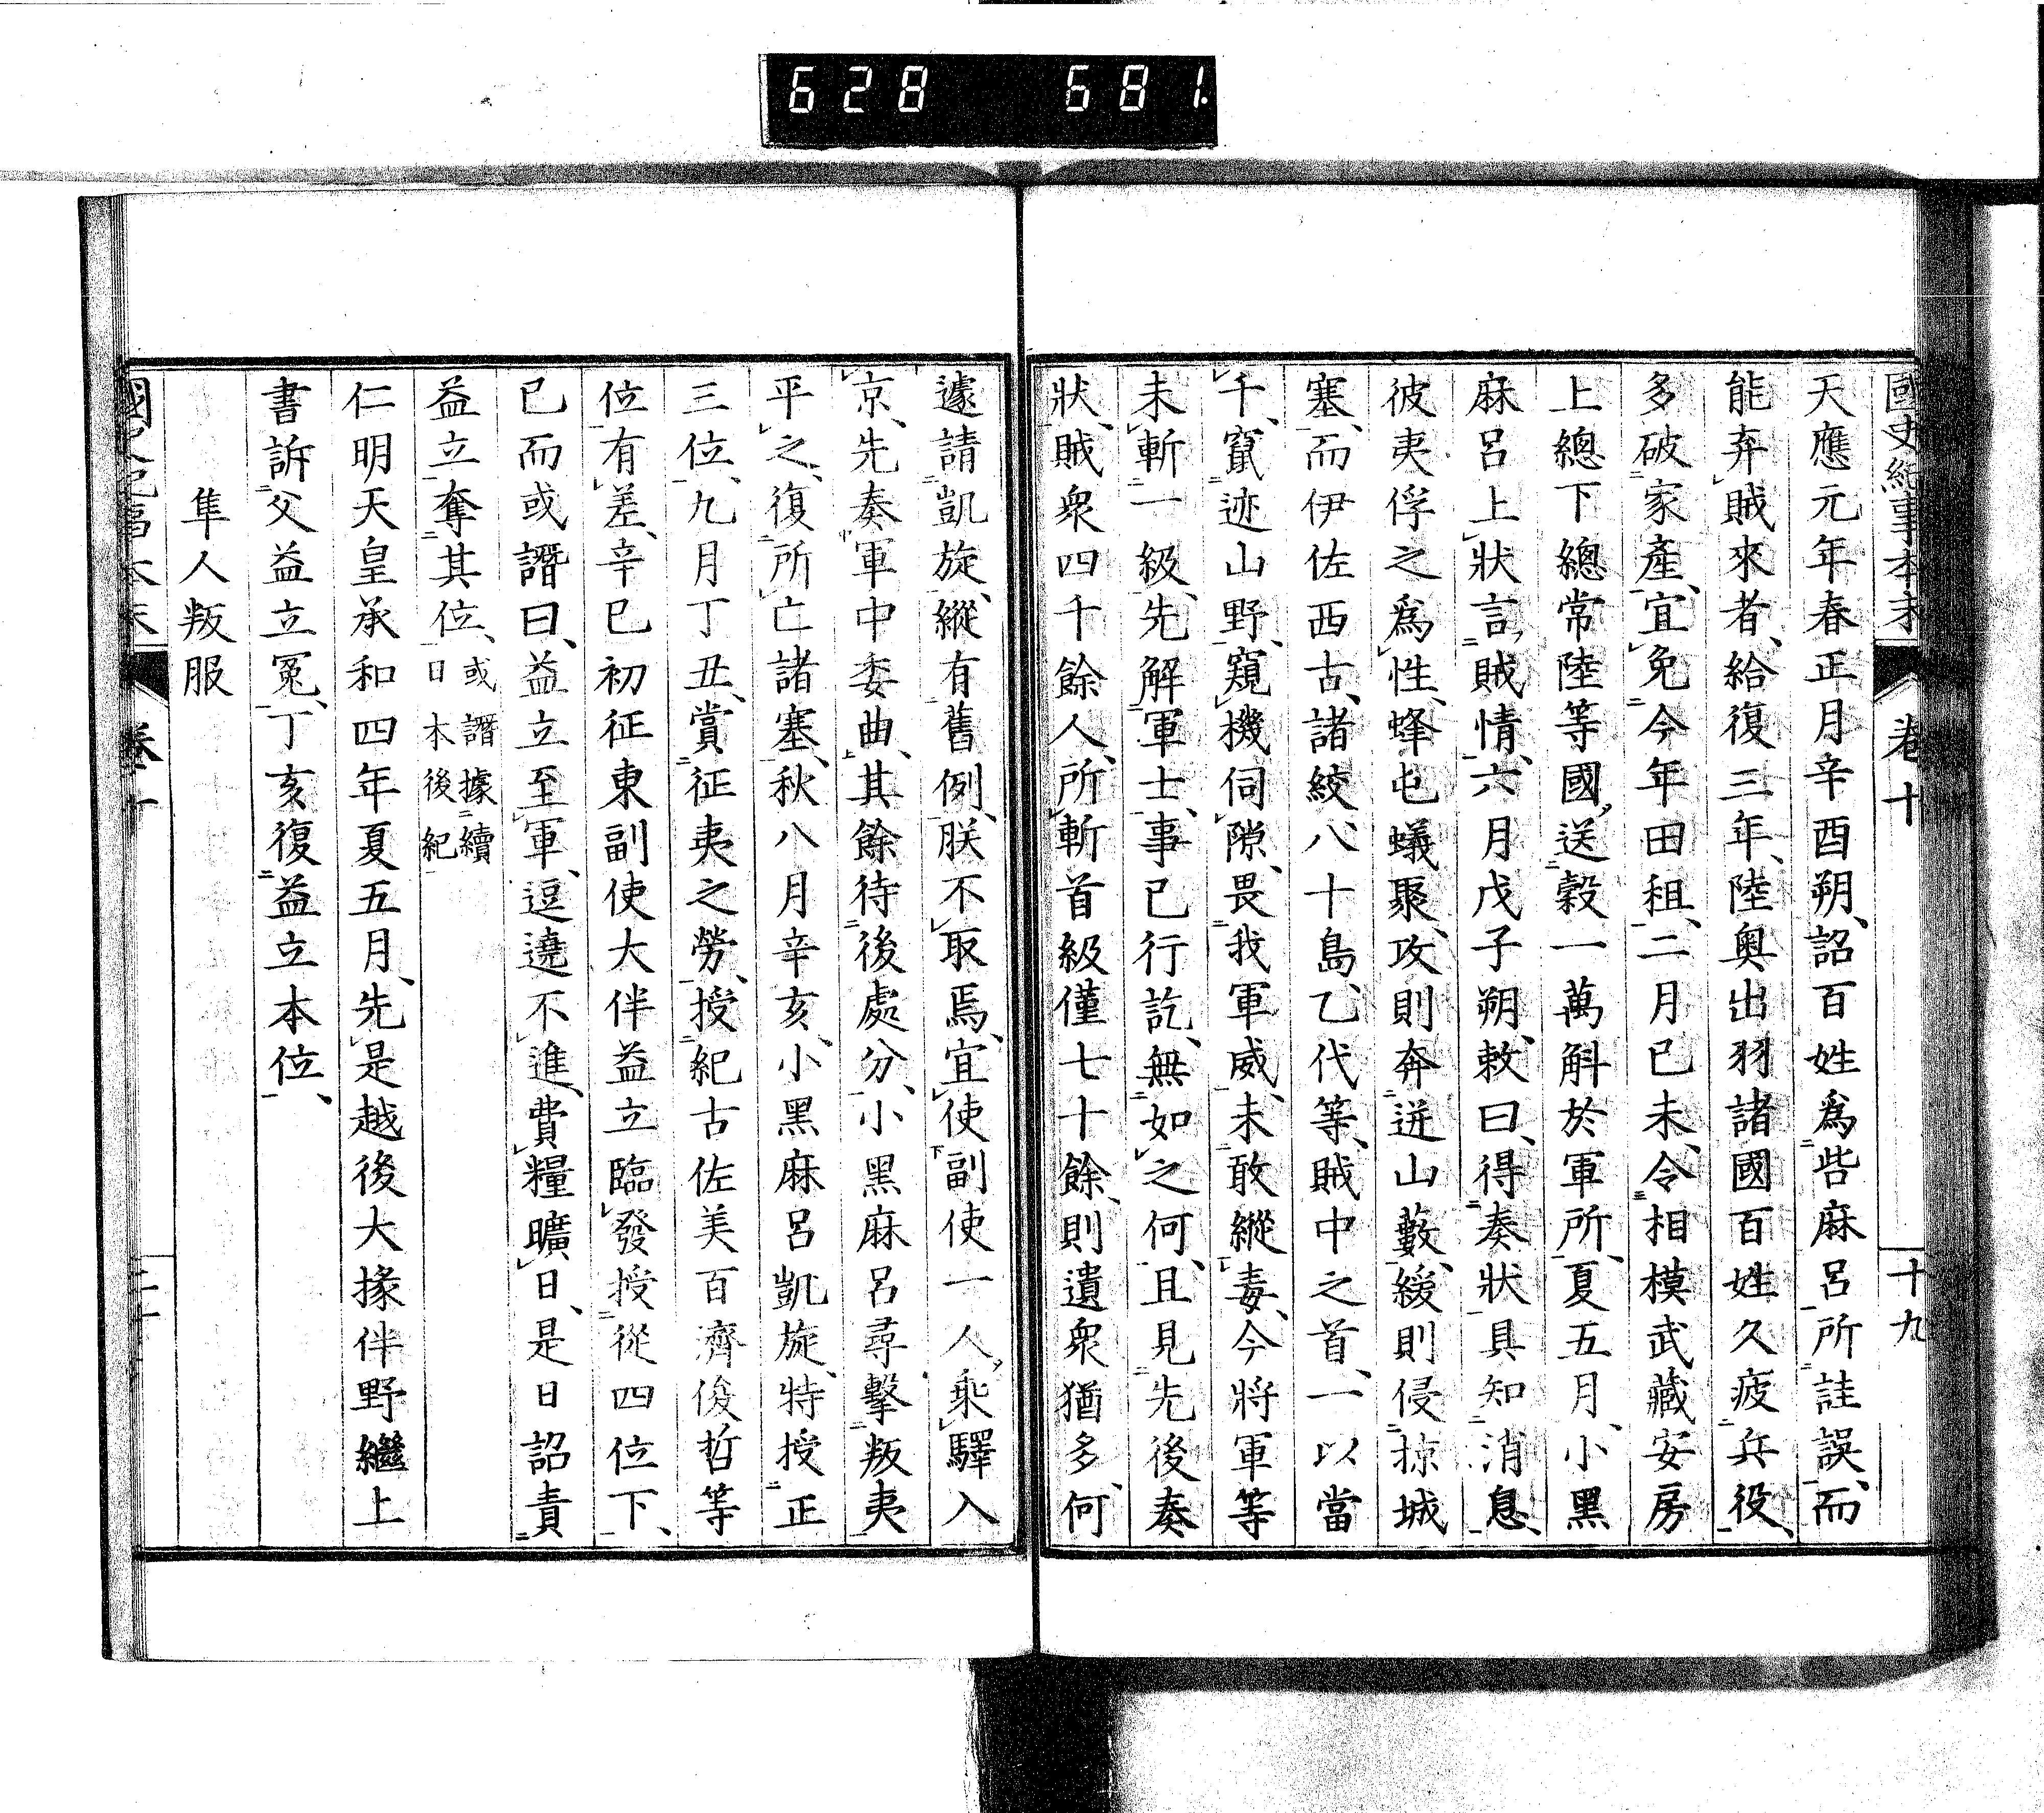 628 681.
國史紀事本末 卷十 十九
天應元年春正月辛酉朔、詔百姓爲呰麻呂所詿誤、而
能弃賊來者、給復三年、陸奧出羽諸國百姓久疲兵役、
多破家產、宜免今年田租、二月己未、令相模武藏安房
上總下總常陸等國、送穀一萬斛於軍所、夏五月、小黑
麻呂上狀言賊情、六月戊子朔、敕曰、得奏狀具知消息、
彼夷俘之爲性、蜂屯蟻聚、攻則奔迸山藪、緩則侵掠城
塞、而伊佐西古、諸絞、八十島、乙代等、賊中之首、一以當
千、竄迹山野、窺機伺隙、畏我軍威、未敢縱毒、今將軍等
未斬一級、先解軍士、事已行訖、無如之何、且見先後奏
狀、賊衆四千餘人、所斬首級僅七十餘、則遺衆猶多、何
遽請凱旋、縱有舊例、朕不取焉、宜使副使一人乘驛入
京、先奏軍中委曲、其餘待後處分、小黑麻呂尋擊叛夷
平之、復所亡諸塞、秋八月辛亥、小黑麻呂凱旋、特授正
三位、九月丁丑、賞征夷之勞、授紀古佐美百濟俊哲等
位有差、辛巳初征東副使大伴益立臨發授從四位下、
已而或譖曰、益立至軍、逗遶不進、費糧曠日、是日詔責
益立奪其位、或譖據續日本後紀
仁明天皇承和四年夏五月、先是越後大掾伴野繼上
書訴父益立冤、丁亥復益立本位、
隼人叛服